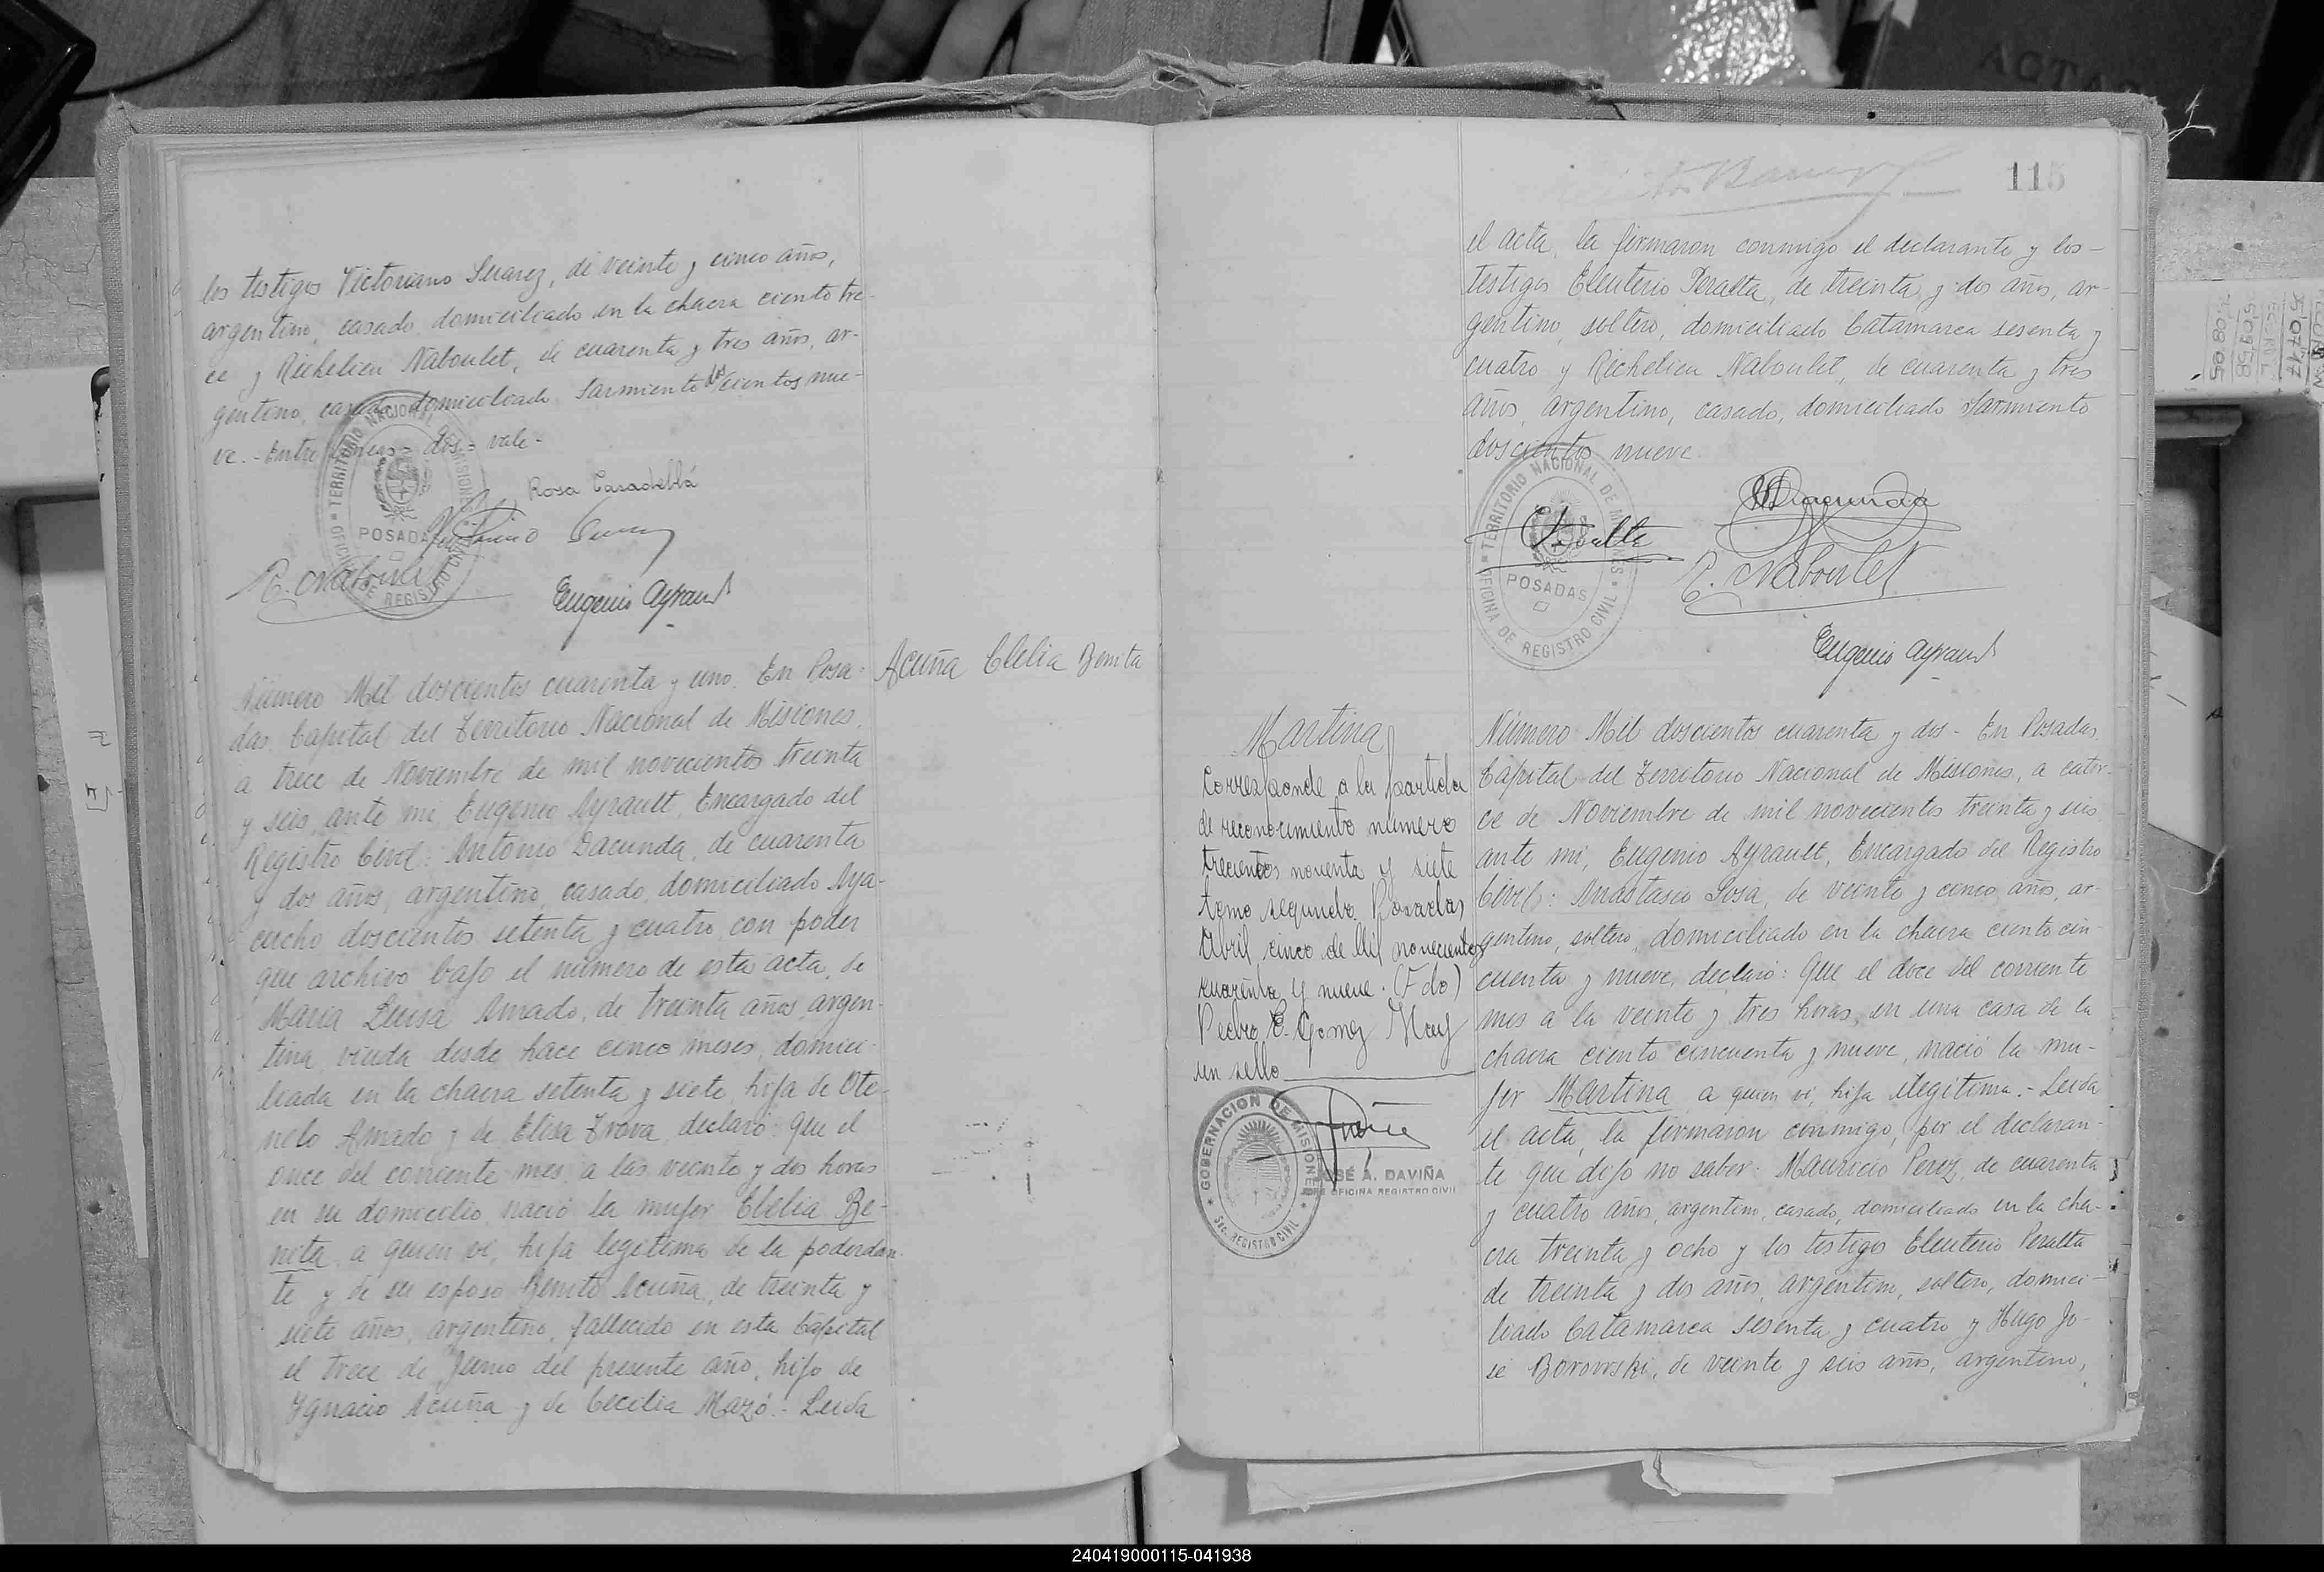 los testigos Victoriano Suarez, de veinte y cinco años,
argentino, casado, domiciliado en la chacra ciento tre-
ce y Richelieu Naboulet, de cuarenta y tres años, ar-
gentino, casado, domiciliado Sarmiento dos cientos nue-
ve. - Entre lineas = dos = vale -
TERRITORIO NACIONAL DE MISIONES
POSADAS
OFICINA DE REGISTRO CIVIL
Rosa Casadellá
R. Naboulet
Eugenio Ayrault
Acuña Clelia Benita
Número Mil doscientos cuarenta y uno. En Posa-
das Capital del Territorio Nacional de Misiones,
a trece de Noviembre de mil novecientos treinta
y seis, ante mi, Eugenio Ayrault, Encargado del
Registro Civil: Antonio Dacunda, de cuarenta
y dos años, argentino, casado, domiciliado Aya-
cucho doscientos setenta y cuatro, con poder
que archivo bajo el número de esta acta, de
Maria Luisa Amado, de treinta años, argen-
tina, viuda desde hace cinco meses, domici-
liada en la chacra setenta y siete, hija de Ote-
nelo Amado y de Elisa Trova, declaró: Que el
once del corriente mes, a las veinte y dos horas
en su domicilio, nació la mujer Clelia Be-
nita, a quien vi, hija legitima de la poderdan-
te y de su esposo Benito Acuña, de treinta y
siete años, argentino, fallecido en esta Capital
el trece de Junio del presente año, hijo de
Ygnacio Acuña y de Cecilia Mazó. - Leida
115
el acta, la firmaron conmigo el declarante y los -
testigos Eleuterio Peralta, de treinta y dos años, ar-
gentino, soltero, domiciliado Catamarca sesenta y
cuatro y Richelieu Naboulet, de cuarenta y tres
años, argentino, casado, domiciliado Sarmiento
doscientos nueve.
TERRITORIO NACIONAL DE MISIONES
POSADAS
OFICINA DE REGISTRO CIVIL
Dacunda
R. Naboulet
Eugenio Ayrault
Martina
Corresponde a la partida
de reconocimiento número
trecientos noventa y siete
tomo segundo. Posadas
Abril, cinco de Mil novecientos
cuarenta y nueve. (Fdo)
Pedro E. Gomez Hay
un sello
GOBERNACION DE MISIONES
SEC. REGISTRO CIVIL
JOSÉ A. DAVIÑA
JEFE OFICINA REGISTRO CIVIL
Número Mil doscientos cuarenta y dos - En Posadas
Capital del Territorio Nacional de Misiones, a cator-
ce de Noviembre de mil novecientos treinta y seis
ante mi, Eugenio Ayrault, Encargado del Registro
Civil: Anastasio Sosa, de veinte y cinco años, ar-
gentino, soltero, domiciliado en la chacra ciento cin-
cuenta y nueve, declaró: Que el doce del corriente
mes a la veinte y tres horas, en una casa de la
chacra ciento cincuenta y nueve, nació la mu-
jer Martina a quien vi, hija ilegitima. - Leida
el acta, la firmaron conmigo, por el declaran-
te que dijo no saber: Mauricio Perez, de cuarenta
y cuatro años, argentino, casado, domiciliado en la cha-
cra treinta y ocho y los testigos Eleuterio Peralta
de treinta y dos años, argentino, soltero, domici-
liado Catamarca sesenta y cuatro y Hugo Jo-
sé Borowski, de veinte y seis años, argentino,
240419000115-041938